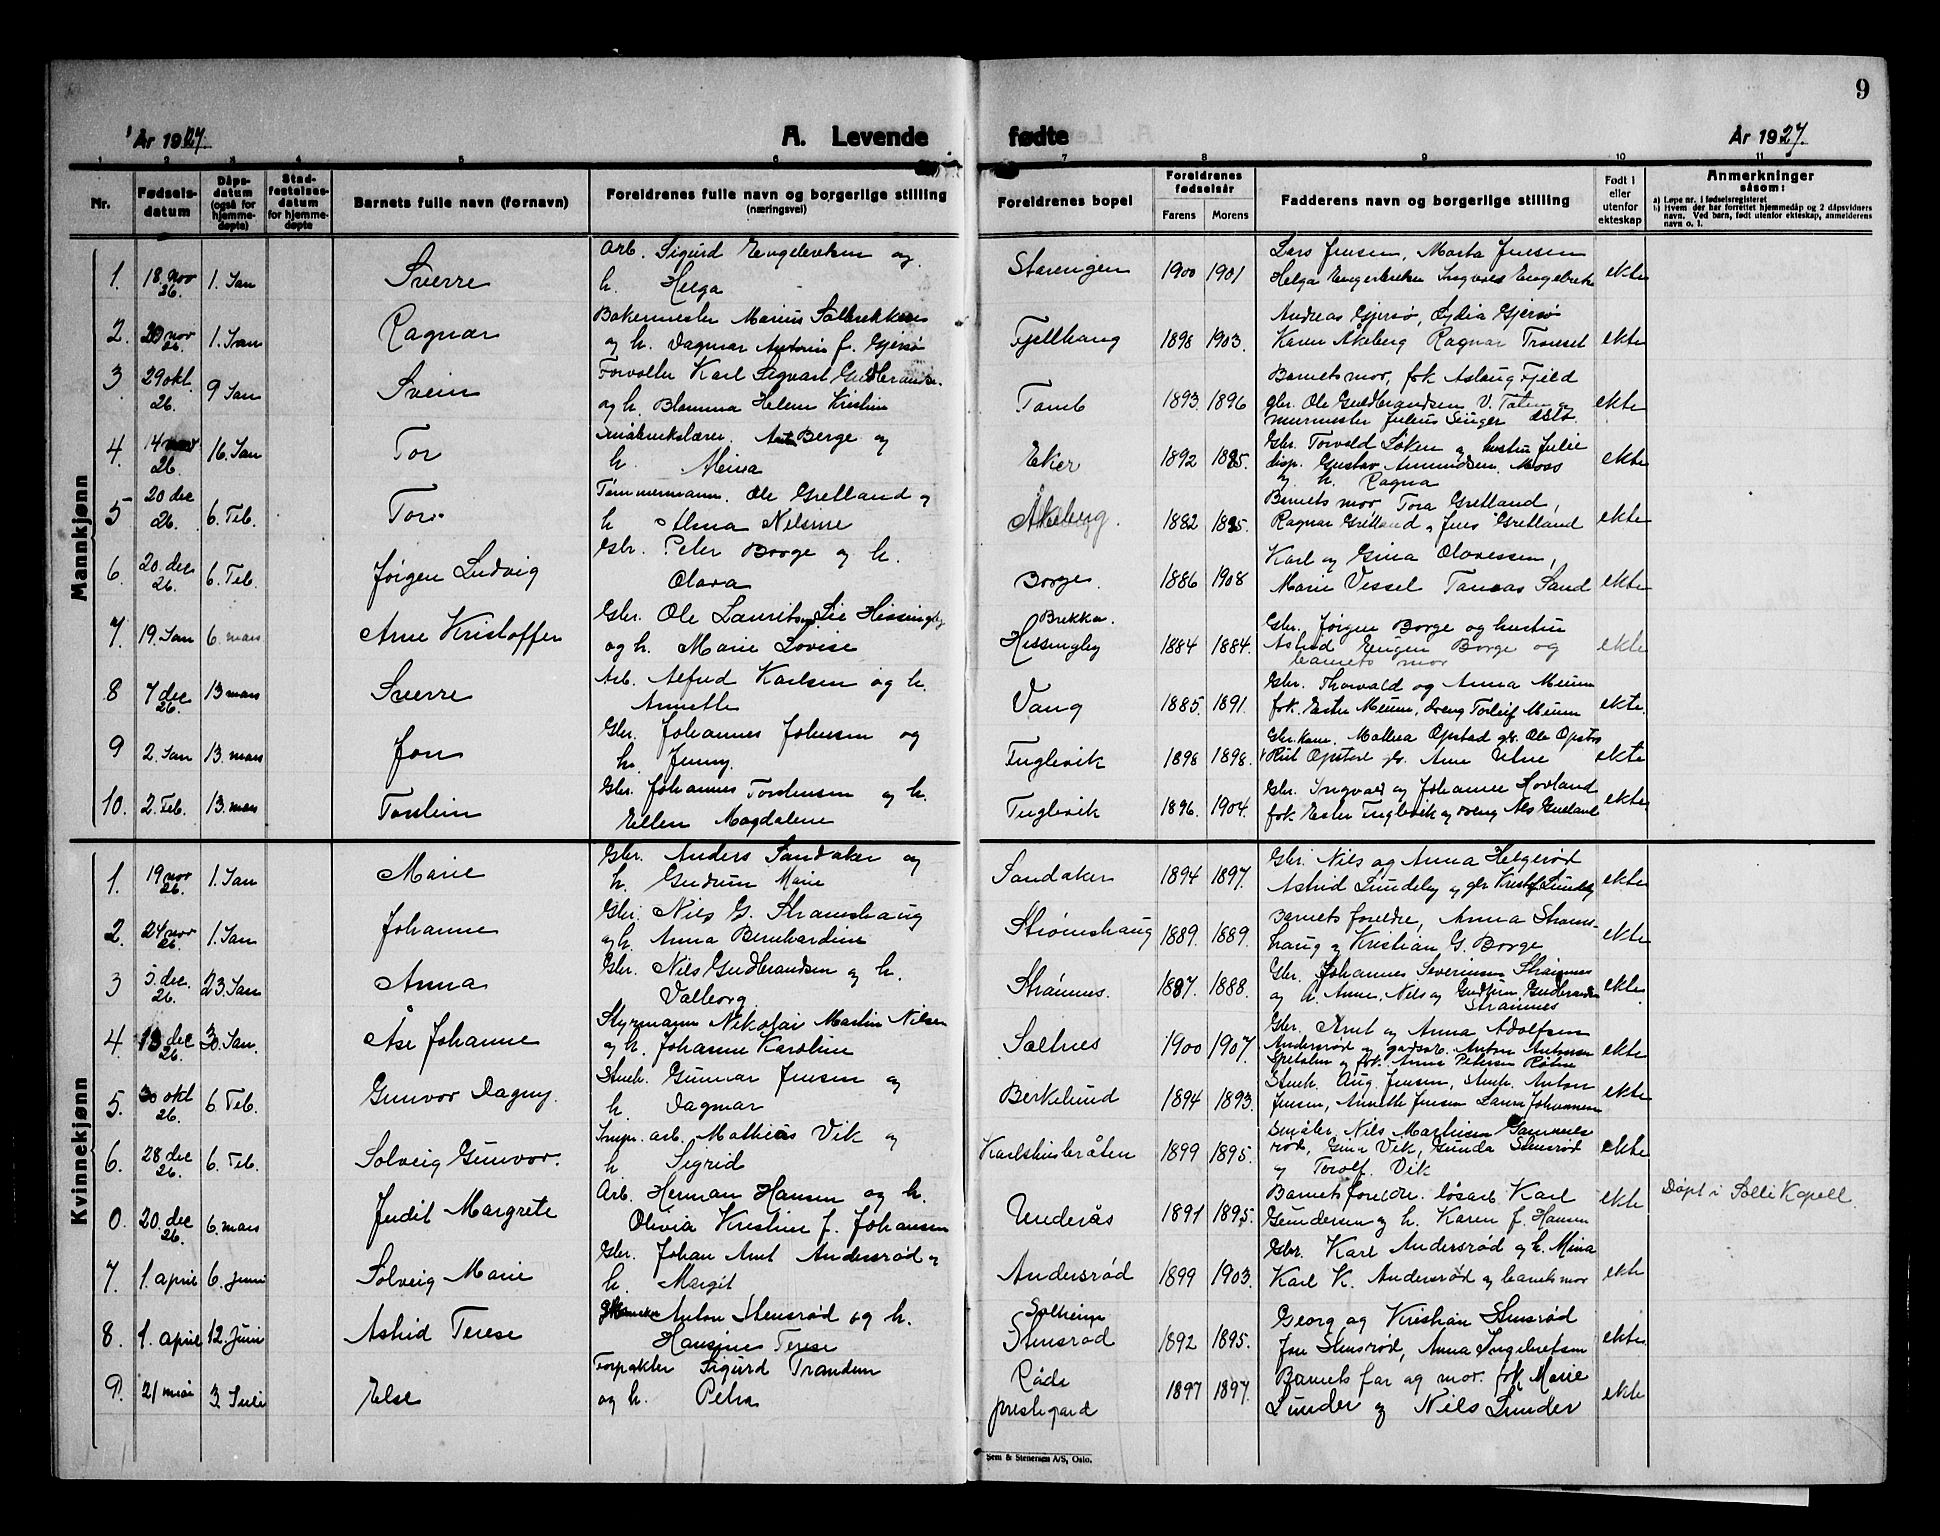 9
År 1927.
A. Levende
fødte
År 1927.
1 2 3 4 5 6 7 8 9 10 11
Nr.
Fødsels-
datum
Dåps-
datum
(også for
hjemme-
døpte)
Stad-
festelses-
datum
for hjemme-
døpte
Barnets fulle navn (fornavn)
Foreldrenes fulle navn og borgerlige stilling
(næringsvei)
Foreldrenes bopel
Foreldrenes
fødselsår
Farens Morens
Fadderens navn og borgerlige stilling
Født i
eller
utenfor
ekteskap
Anmerkninger
såsom:
a) Løpe nr. i fødselsregisteret
b) Hvem der har forrettet hjemmedåp og 2 dåpsvidners
navn. Ved barn, født utenfor ekteskap, anmelderens
navn o. l.
Mannkjønn
Arb. Sigurd og Lars Jensen, Marta Jensen
1. 18. nov 26. 1. Jan Sverre h. Helga Starengen 1900 1901 Helga Ingvald ekte
Bakermester Marius Solbrekke Andreas Gjersø, Lydia Gjersø
2. 20 nov 26. 1. Jan Ragnar og h. Dagmar Antonie f. Gjersø Fjellhaug 1898 1903. Karen Åkeberg Ragnar ekte
Forvalter Karl Sigvart Guldbrandsen Barnets mor, frk Aslaug Fjeld
3 29 okt. 26. 9 Jan Svein og h. Helene Kristine Tomb 1893. 1896 gbr. Ole Guldbrandsen V. Toten ekte
murmester Julius
Småbrukslærer. Berge og Gbr. Torvald Løken og hustru Julie
4. 14 26. 16. Jan Tor h. Mina Eker 1892 1895. disp. Gustav Amundsen, Moss ekte
og h. Ragna
Tømmermann. Ole Gretland og Barnets mor, Tora Gretland,
5 20 dec 26. 6. Feb. Tore h Alma Nilsine Åkeberg. 1882 1885. Ragnar Gretland, Jens Gretland ekte
Gbr. Peter Borge og h. Karl og Gina Olavessen,
6. 20. dec 26. 6. Feb. Jørgen Ludvig Olava Borge. 1886 1908 Marie Vessel Sand ekte
Gbr. Ole Laurits Lie Hissingby Brekka. Gbr. Jørgen Borge og hustru
7. 19. Jan 6. mars Arne Kristoffer og h. Marie Lovise Hissingby 1884 1884. Astrid Borge og ekte
barnets mor
Arb. Alfred Karlsen og h. Gbr. Thorvald og Anna Meum
8 7 dec 26. 13 mars Sverre Annette Vang 1885. 1891. frk. Ester Meum, dreng Torleif Meum ekte.
Gbr. Johannes Johnsen og Gbr. kone. Mathea Opstad gbr. Ole Opstad
9 2. Jan 13. mars Jon h. Jenny. Fuglevik 1898 1898. Rut Opstad gbr. Arne ekte
Gbr. Johannes Torstensen og h. Gbr. Ingvald og Johanne Hovland
10. 2. Feb. 13 mars Torstein Ellen Magdalene Fuglevik 1896. 1904. frk Ester Fuglevik og dreng ekte
Kvinnekjønn
Gbr. Anders Sandaker og Gbr. Nils og Anna Helgerød
1. 19 nov 26. 1. Jan Marie h. Gudrun Marie Sandaker 1894 1897. Astrid Lundeby og gbr Lundeby ekte
Gbr. Nils G. Strømshaug Barnets foreldre, Anna Strøms-
2. 24 nov 26. 1. Jan Johanne og h. Anna Bernhardine Strømshaug 1889. 1889. haug og Kristian G. Borge ekte
Gbr. Nils Gudbrandsen og h. Gbr. Johannes Severinsen Strømnes
3 5. dec. 26. 23. Jan Anna Valborg. Strømnes. 1887. 1888. og h. Anne, Nils og Gudrun Gudbrandsen ekte.
Strømnes
Styrmann Nikolai Martin Nilsen Gbr. Arnt og Anna Adolfsen
4. 13 dec 26. 30. Jan. Åse Johanne og h. Johanne Karoline Saltnes 1900 1907. Andersrød og gadsarb. Anton Antonsen ekte
og frk. Anna Petersen
Stenh. Gunnar Jensen og Stenh. Aug. Jensen, Stenh. Anton
5. 30 okt 26. 6 Feb. Gunvor Dagny. h. Dagmar Berkelund 1894 1893. Jensen, Annette Jensen Laura Johannesen ekte
arb. Mathias Vik og Småbr. Nils Marthinsen
6. 28 dec 26. 6. Feb. Solveig Gunvor. h Sigrid Karlshusbråten 1899 1895. rød, Gina Vik, Gunda Stensrød ekte
og Torolf. Vik
Arb. Herman Hansen og h. Barnets foreldre. løsarb. Karl
0. 20. dec 26. 6. mars Judit Margrete Olivia Kristine f. Johansen Underås 1891 1895. Gundersen og h. Karen f. Hansen ekte Døpt i Solli Kapell.
Gbr. Johan Arnt Andersrød og Gbr. Karl Andersrød og h. Mina
7. 1. april 6. Juni Solveig Marie h. Margit Andersrød 1899 1903. Karl K. Andersrød og barnets mor ekte
Anton Stensrød og h. Solheim Georg og Kristian Stensrød
8. 1. april 12. Juni Astrid Terese Hansine Terese Stensrød 1892 1895. Stensrød, Anna Ingebretsen ekte
Forpakter Sigurd Trandem Råde Barnets far og mor. frk Marie
9. 21 mai 3. Juli Else og h. Petra prestegard 1897 1897. Sunder og Nils Sunder ekte
Sem & Stenersen A/S, Oslo.